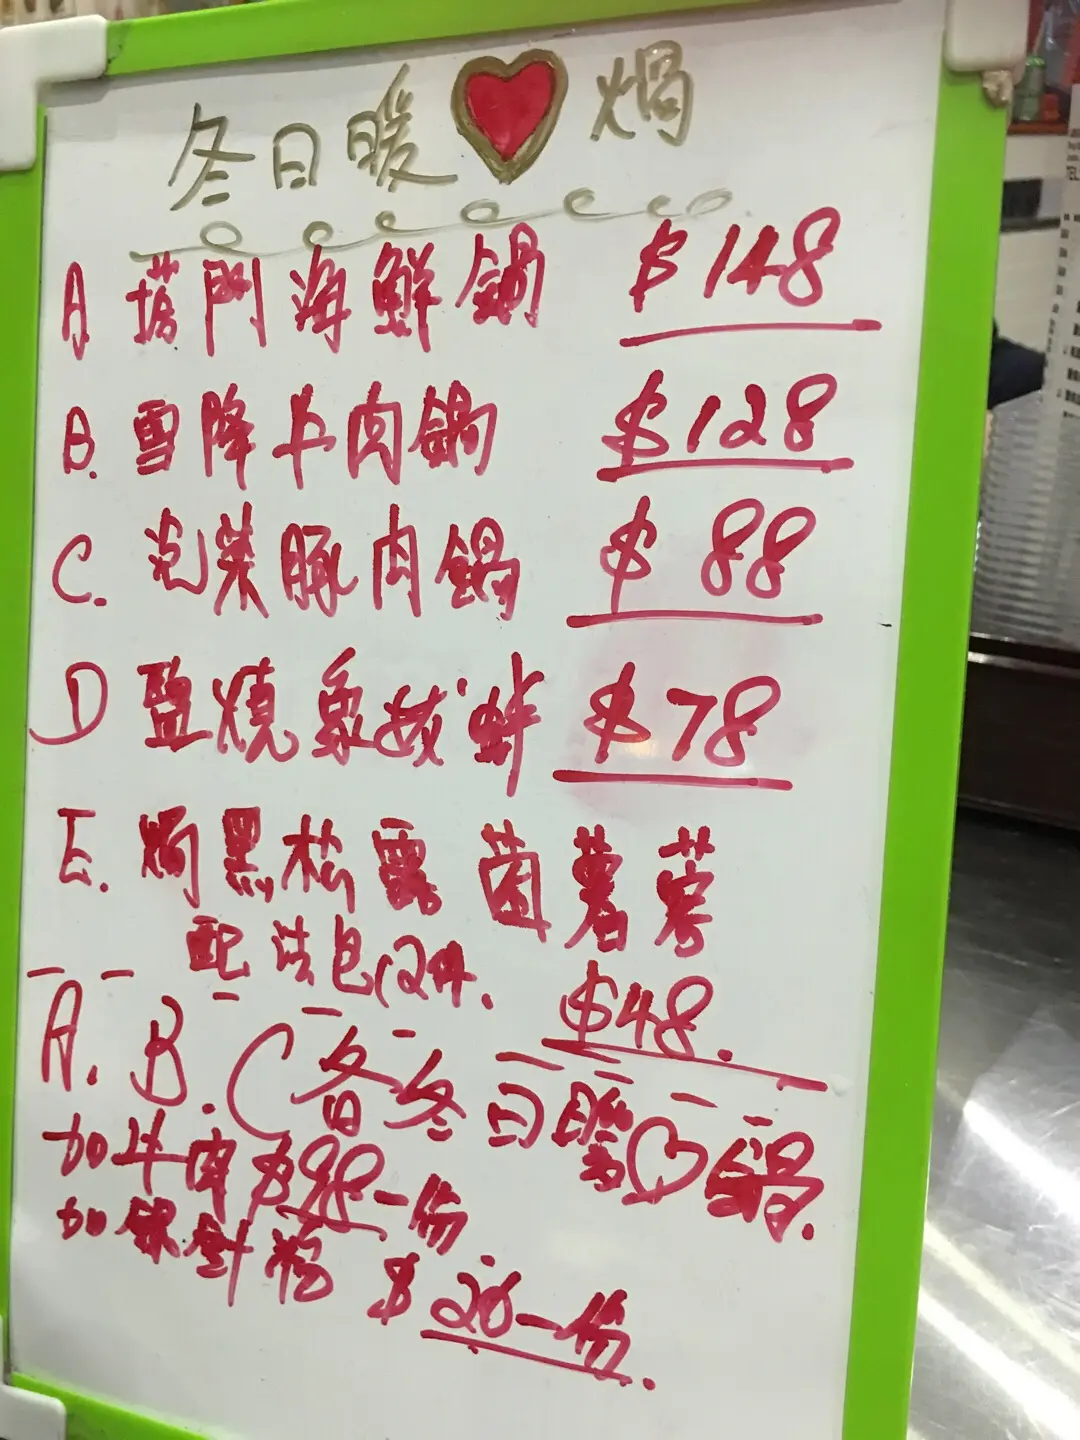 冬日暖❤焗
A. 澳門海鮮鍋 $148
B. 雪降牛肉鍋 $128
C. 泡菜豚肉鍋 $88
D 盬燒象拔蚌 $78
E. 焗黑松露菌薯蓉
配法包(2件. $48.
A. B. C 各冬日暖♡鍋.
加牛肉$98一份.
加銀針粉 $20一份.
TEL